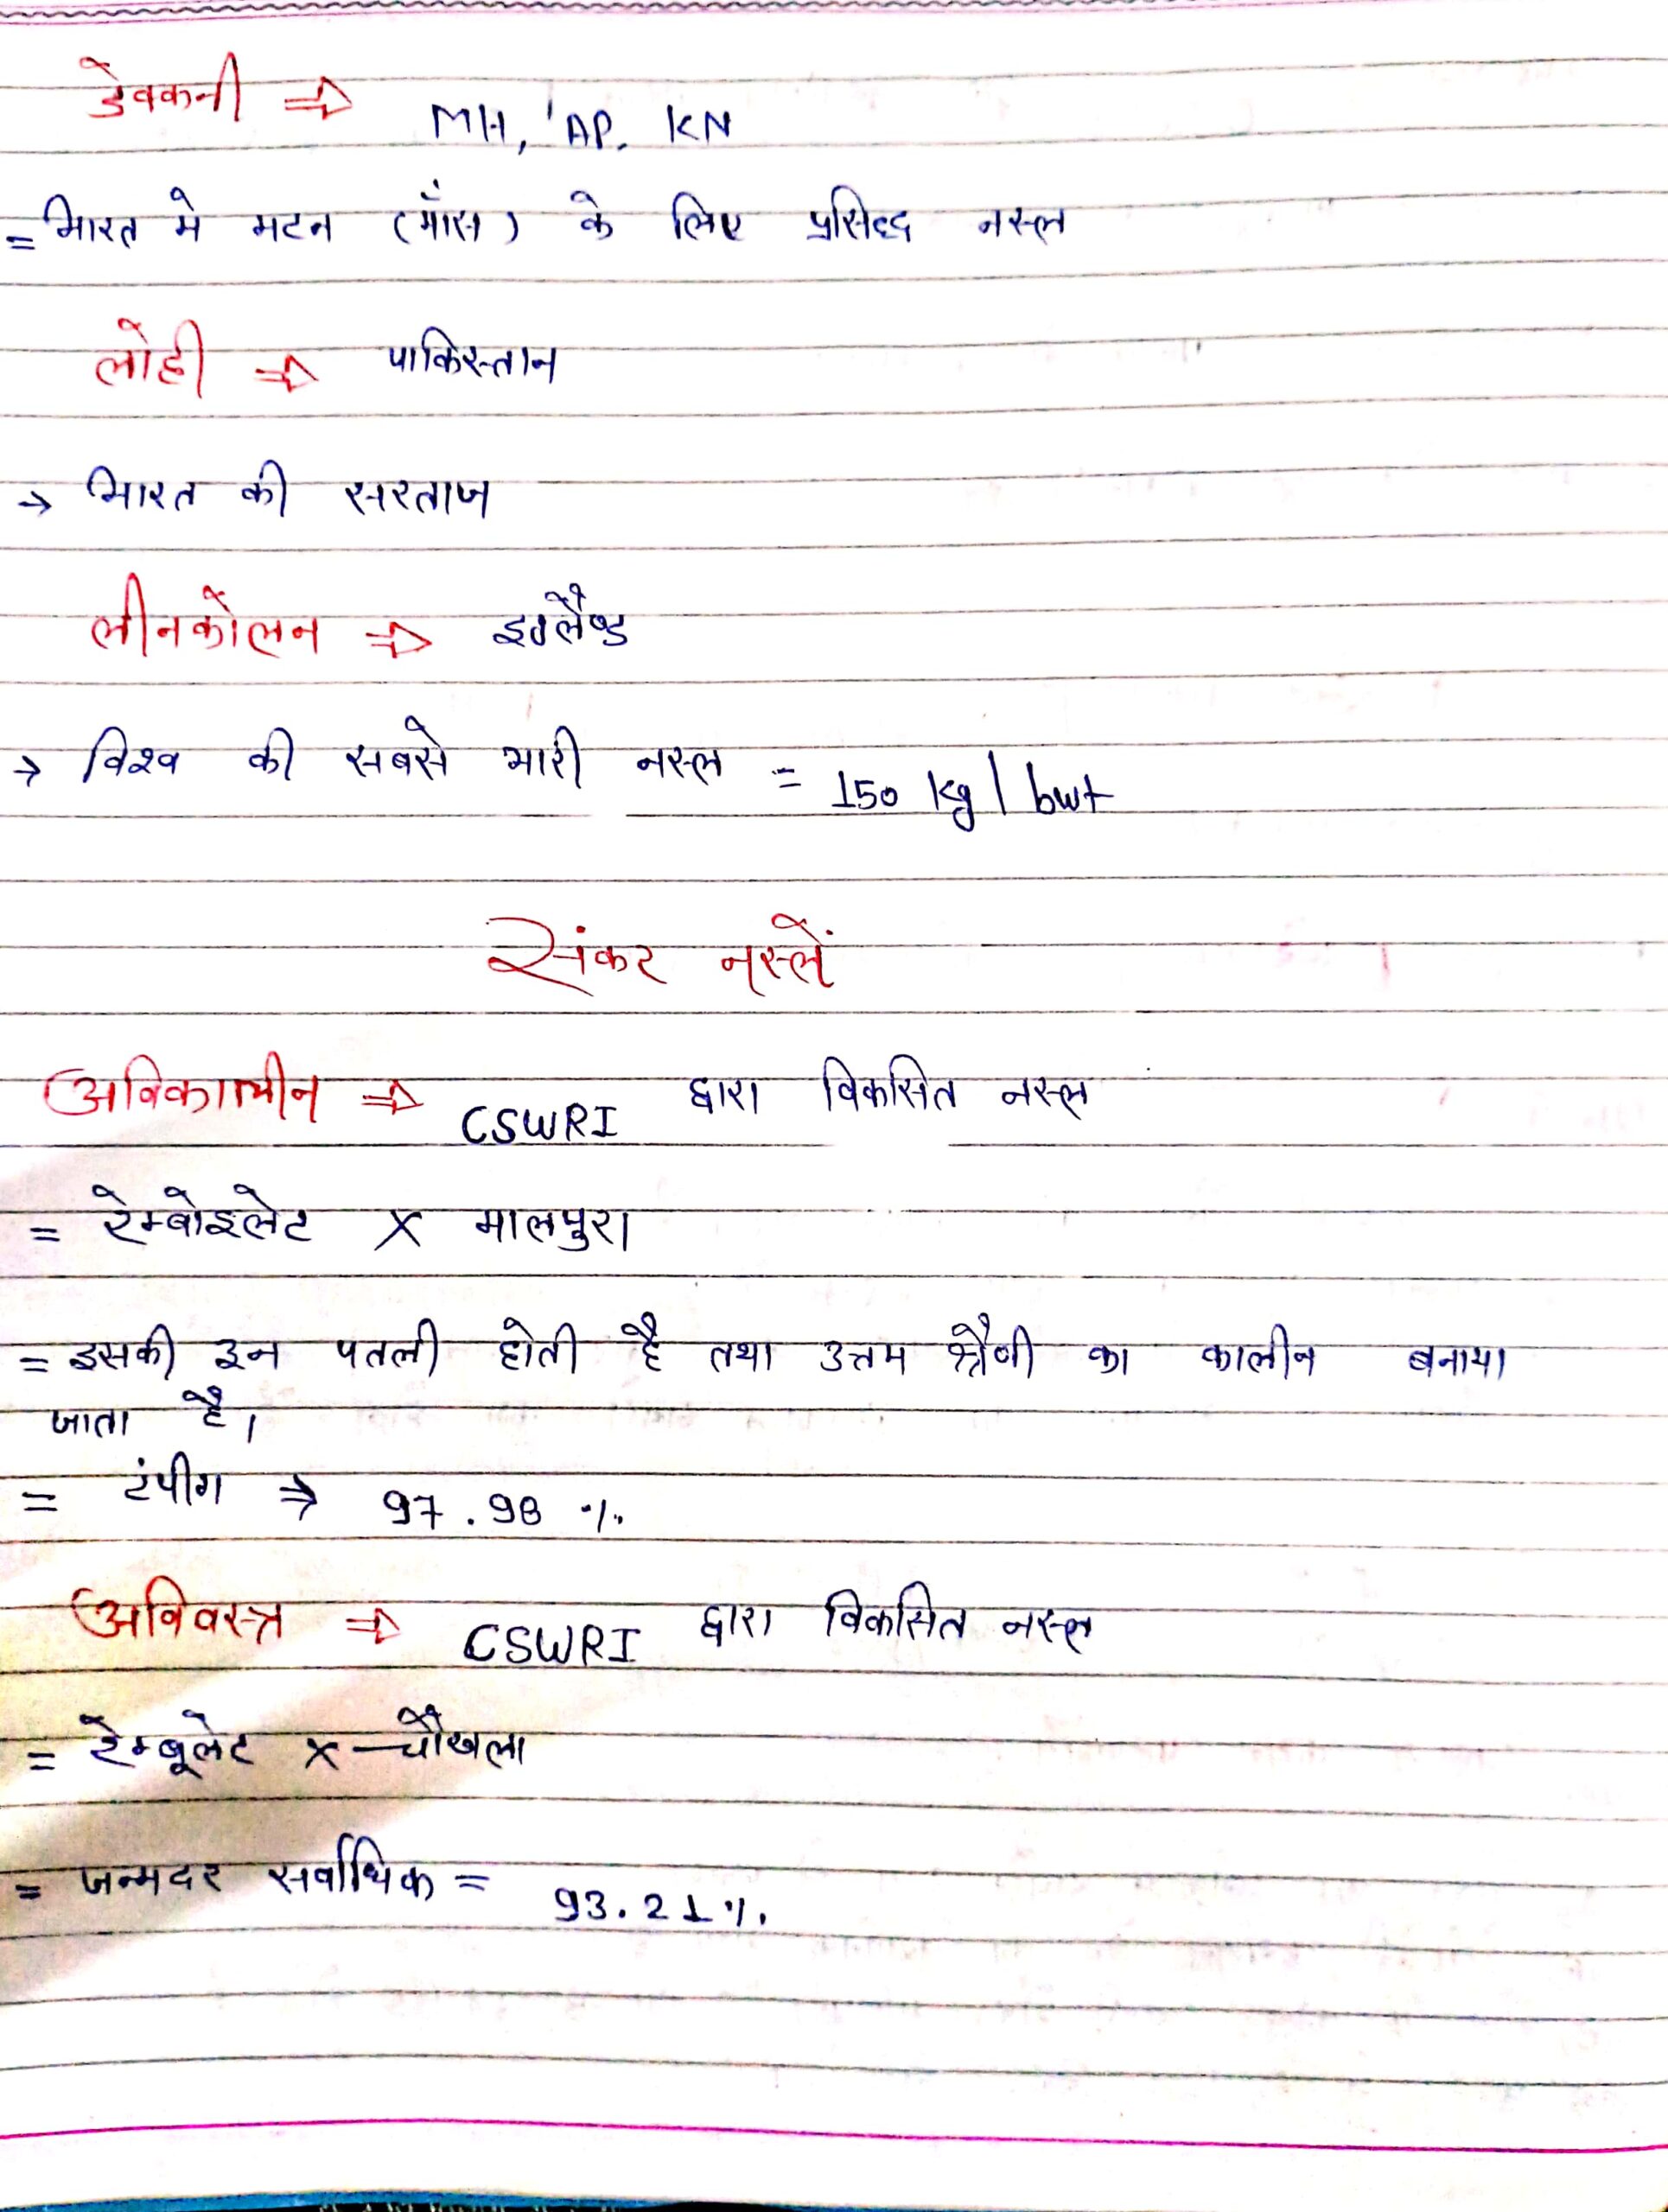 डेक्कनी ⇒ MH, AP, KN
= भारत मे मटन (माँस) के लिए प्रसिद्द नस्ल
लोही ⇒ पाकिस्तान
→ भारत की सरताज
लीनकोलन ⇒ इग्लैण्ड
→ विश्व की सबसे भारी नस्ल = 150 kg / bwt
संकर नस्लें
अविकालीन ⇒ CSWRI द्वारा विकसित नस्ल
= रेम्बोइलेट X मालपुरा
= इसकी उन पतली होती है तथा उत्तम श्रेणी का कालीन बनाया
जाता है।
= टंपीग ⇒ 97.98 %
अविवस्त्र ⇒ CSWRI द्वारा विकसित नस्ल
= रेम्बूलेट X चौखला
= जन्मदर सर्वाधिक = 93.21 %